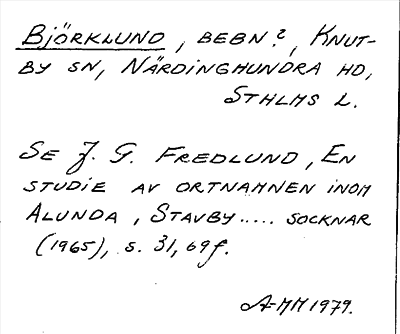 BJÖRKLUND, BEBN.?, KNUT-
BY SN, NÄRDINGHUNDRA HD,
STHLMS L.
SE J. G. FREDLUND, EN
STUDIE AV ORTNAMNEN INOM
ALUNDA, STAVBY..... SOCKNAR
(1965), s. 31, 69f.
A-MM 1979.